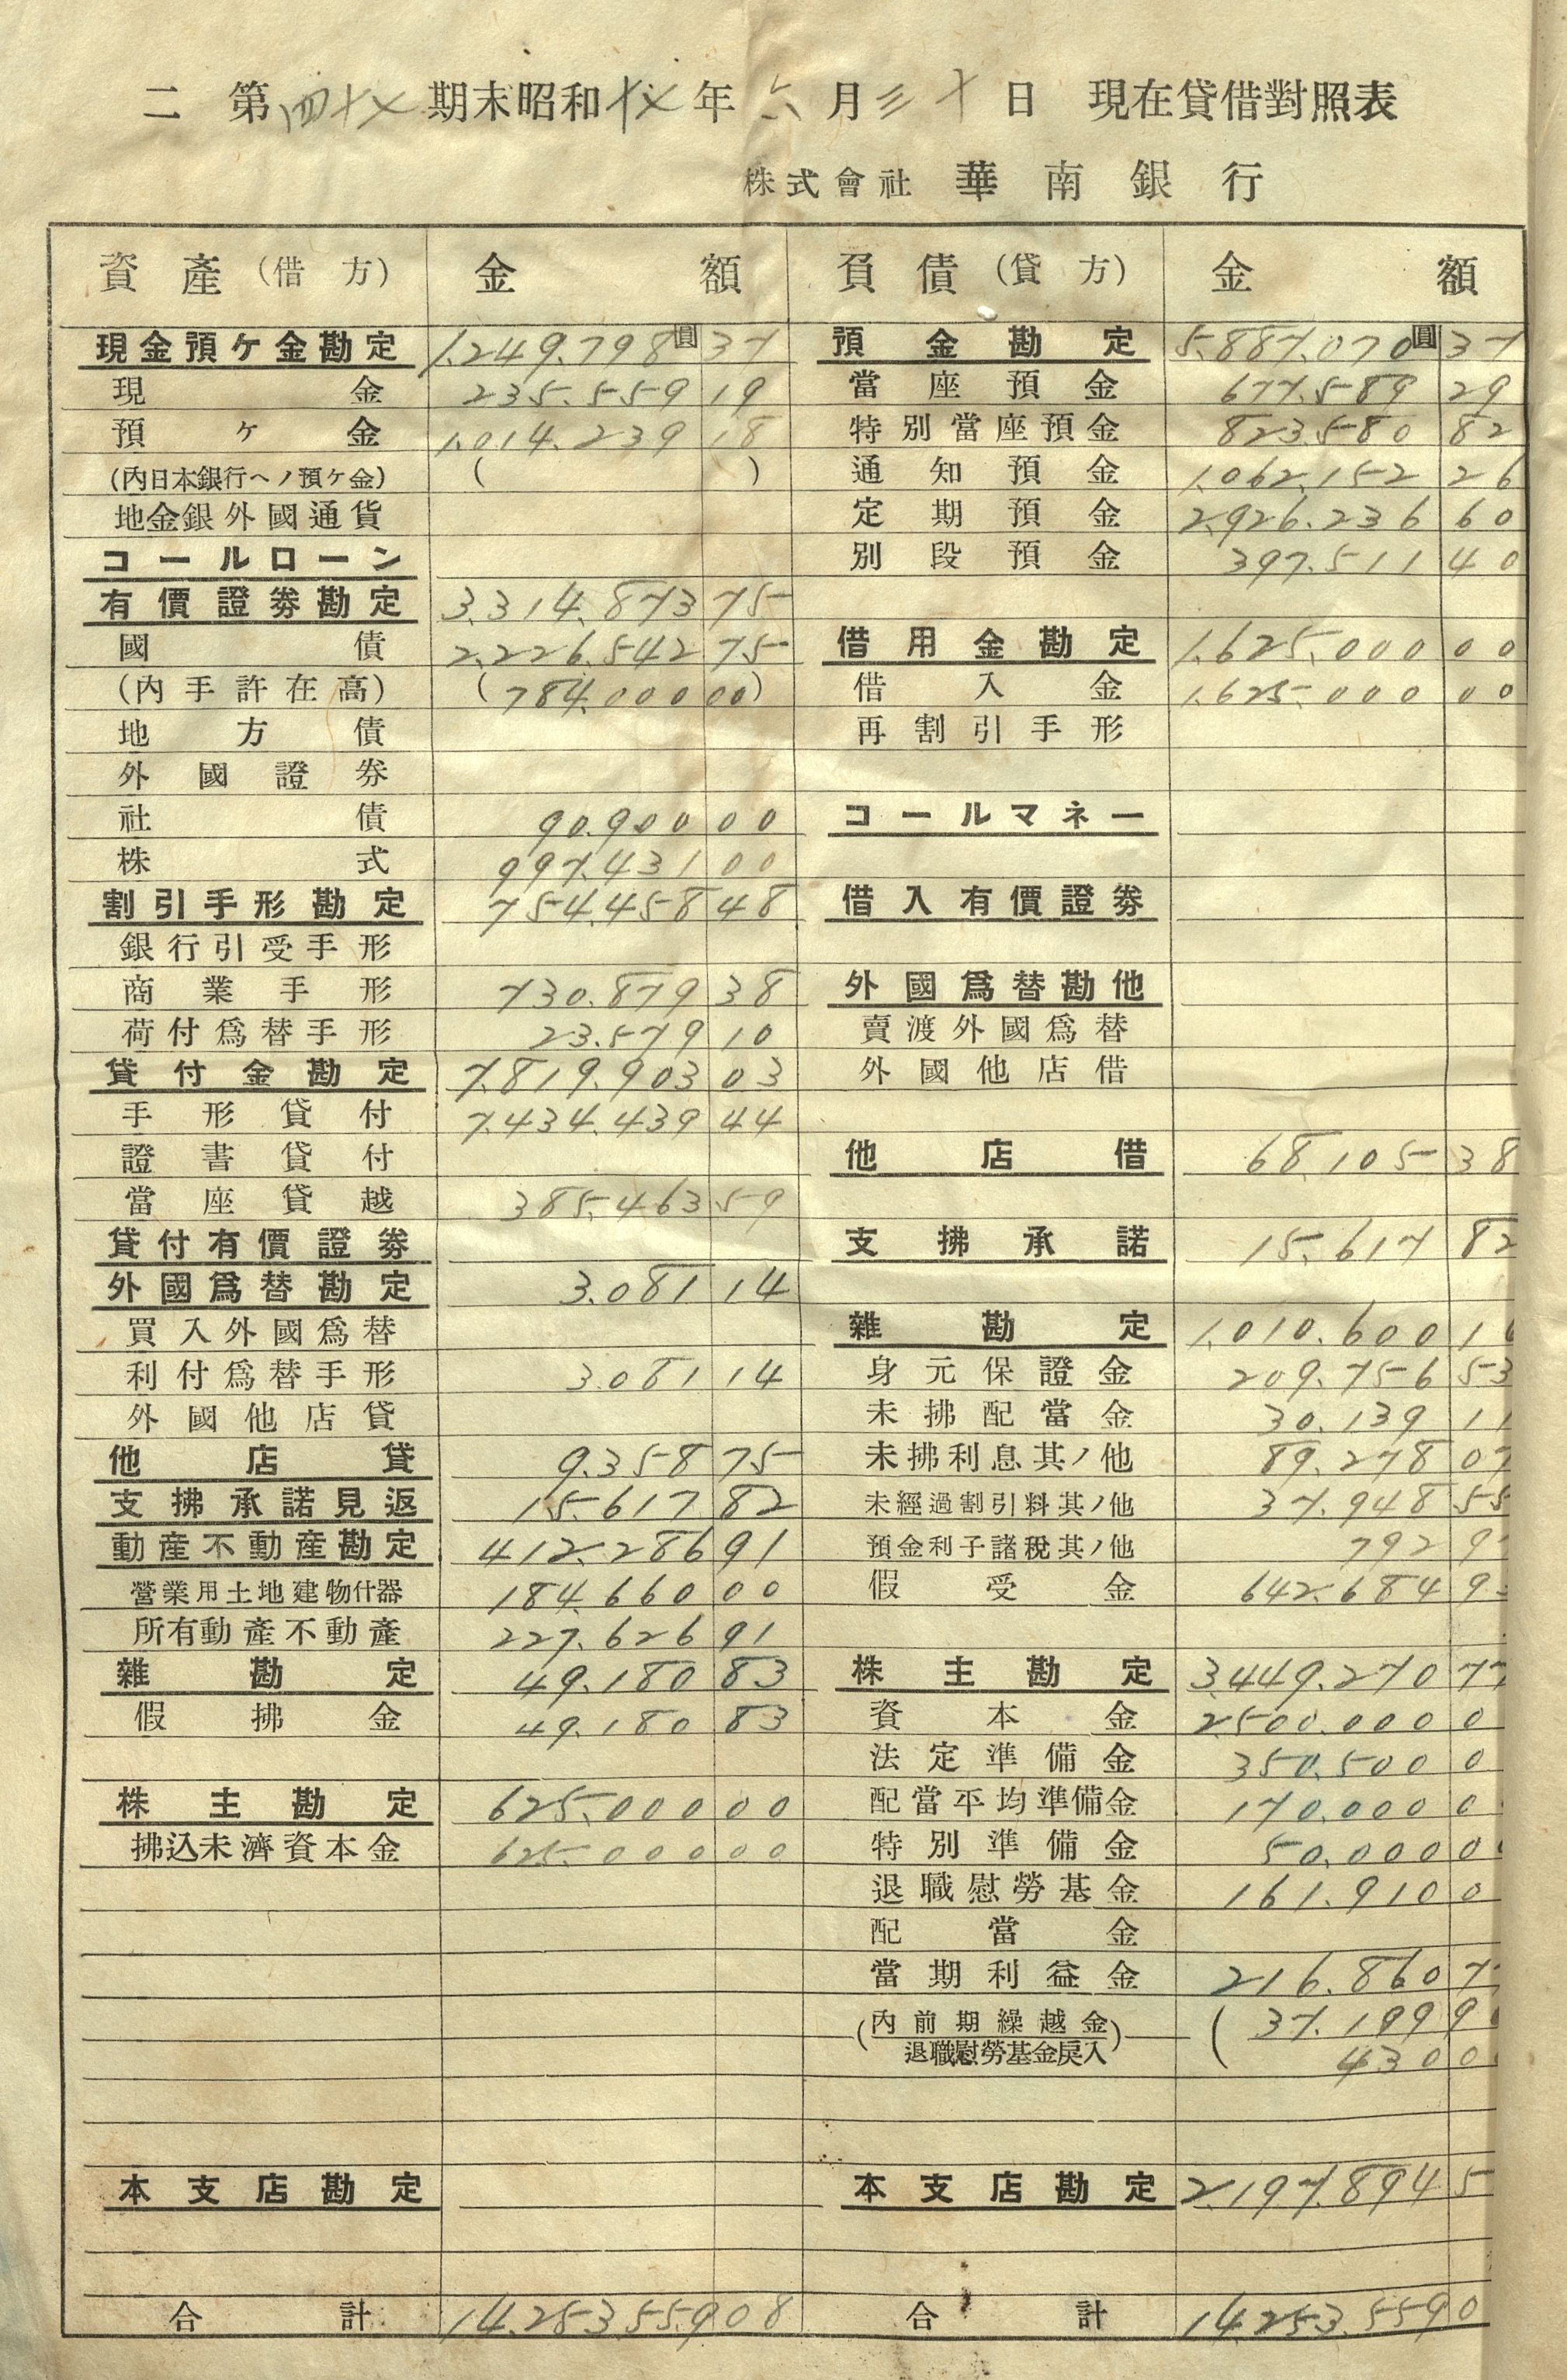 二 第四十七期末昭和十七年六月三十日 現在貸借對照表
株式會社 華南銀行
資產(借方) 金額
現金預ケ金勘定 1.249.798圓37
現金 235.559 19
預ケ金 1.014.239 18
(內日本銀行ヘノ預ケ金) ( )
地金銀外國通貨
コールローン
有價證券勘定 3.314.873 75
國債 2.226.542 75
(內手許在高) (784.000 00)
地方債
外國證券
社債 90.900 00
株式 997.431 00
割引手形勘定 754.458 48
銀行引受手形
商業手形 730.879 38
荷付爲替手形 23.579 10
貸付金勘定 7.819.903 03
手形貸付 7.434.439 44
證書貸付
當座貸越 385.463 59
貸付有價證券
外國爲替勘定 3.081 14
買入外國爲替
利付爲替手形 3.081 14
外國他店貸
他店貸 9.358 75
支拂承諾見返 15.617 82
動產不動產勘定 412.286 91
營業用土地建物什器 184.660 00
所有動產不動產 227.626 91
雜勘定 49.180 83
假拂金 49.180 83
株主勘定 625.000 00
拂込未濟資本金 625.000 00
本支店勘定
合計 14.253.559 08
負債(貸方) 金額
預金勘定 5.887.070圓37
當座預金 677.589 29
特別當座預金 823.580 82
通知預金 1.062.152 26
定期預金 2.926.236 60
別段預金 397.511 40
借用金勘定 1.625.000 00
借入金 1.625.000 00
再割引手形
コールマネー
借入有價證券
外國爲替勘他
賣渡外國爲替
外國他店借
他店借 68.105 38
支拂承諾 15.617 82
雜勘定 1.010.600 16
身元保證金 209.756 53
未拂配當金 30.139 11
未拂利息其ノ他 89.278 07
未經過割引料其ノ他 37.948 55
預金利子諸稅其ノ他 792 9
假受金 642.684 9
株主勘定 3.449.270 77
資本金 2.500.000 0
法定準備金 350.500 0
配當平均準備金 170.000 0
特別準備金 50.000 0
退職慰勞基金 161.910 0
配當金
當期利益金 216.860 7
(內前期繰越金 (37.199 9
退職慰勞基金戾入) 430 0
本支店勘定 2.197.894 5
合計 14.253.559 0